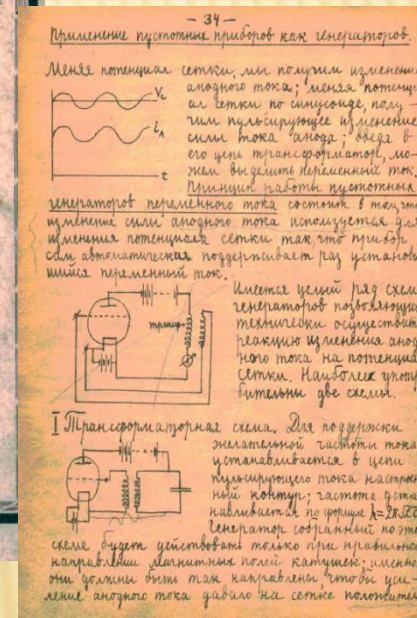 — 34 —
Применение пустотных приборов как генераторов.
Меняя потенциал сетки, мы получим изменени
анодного тока; меняя потенци
ал сетки по синусоиде, полу
чим пульсирующее изменение
силы тока анода; введя в
его цепь трансформатор, мо-
жем выделить переменный ток.
Принцип работы пустотных
генераторов переменного тока состоит в том, что
изменение силы анодного тока используется для
изменения потенциала сетки так, что прибор
сам автоматическая поддерживает раз установи
вшийся переменный ток.
Имеется целый ряд схем
генераторов позволяющих
технически осуществить
реакцию изменения анод
ного тока на потенциал
сетки. Наиболее упот
бительны две схемы.
I Трансформаторная схема. Для поддержки
желательной частоты тока
устанавливается в цепи
пульсирующего тока настрое
ный контур; частота уста
навливается по формуле λ=2π√LC
Генератор собранный по это
схеме будет действовать только при правильно
направлении магнитных полей катушек; именно
они должны быть так направлены, чтобы уси-
ление анодного тока давало на сетке положител
V
i
t
трансф